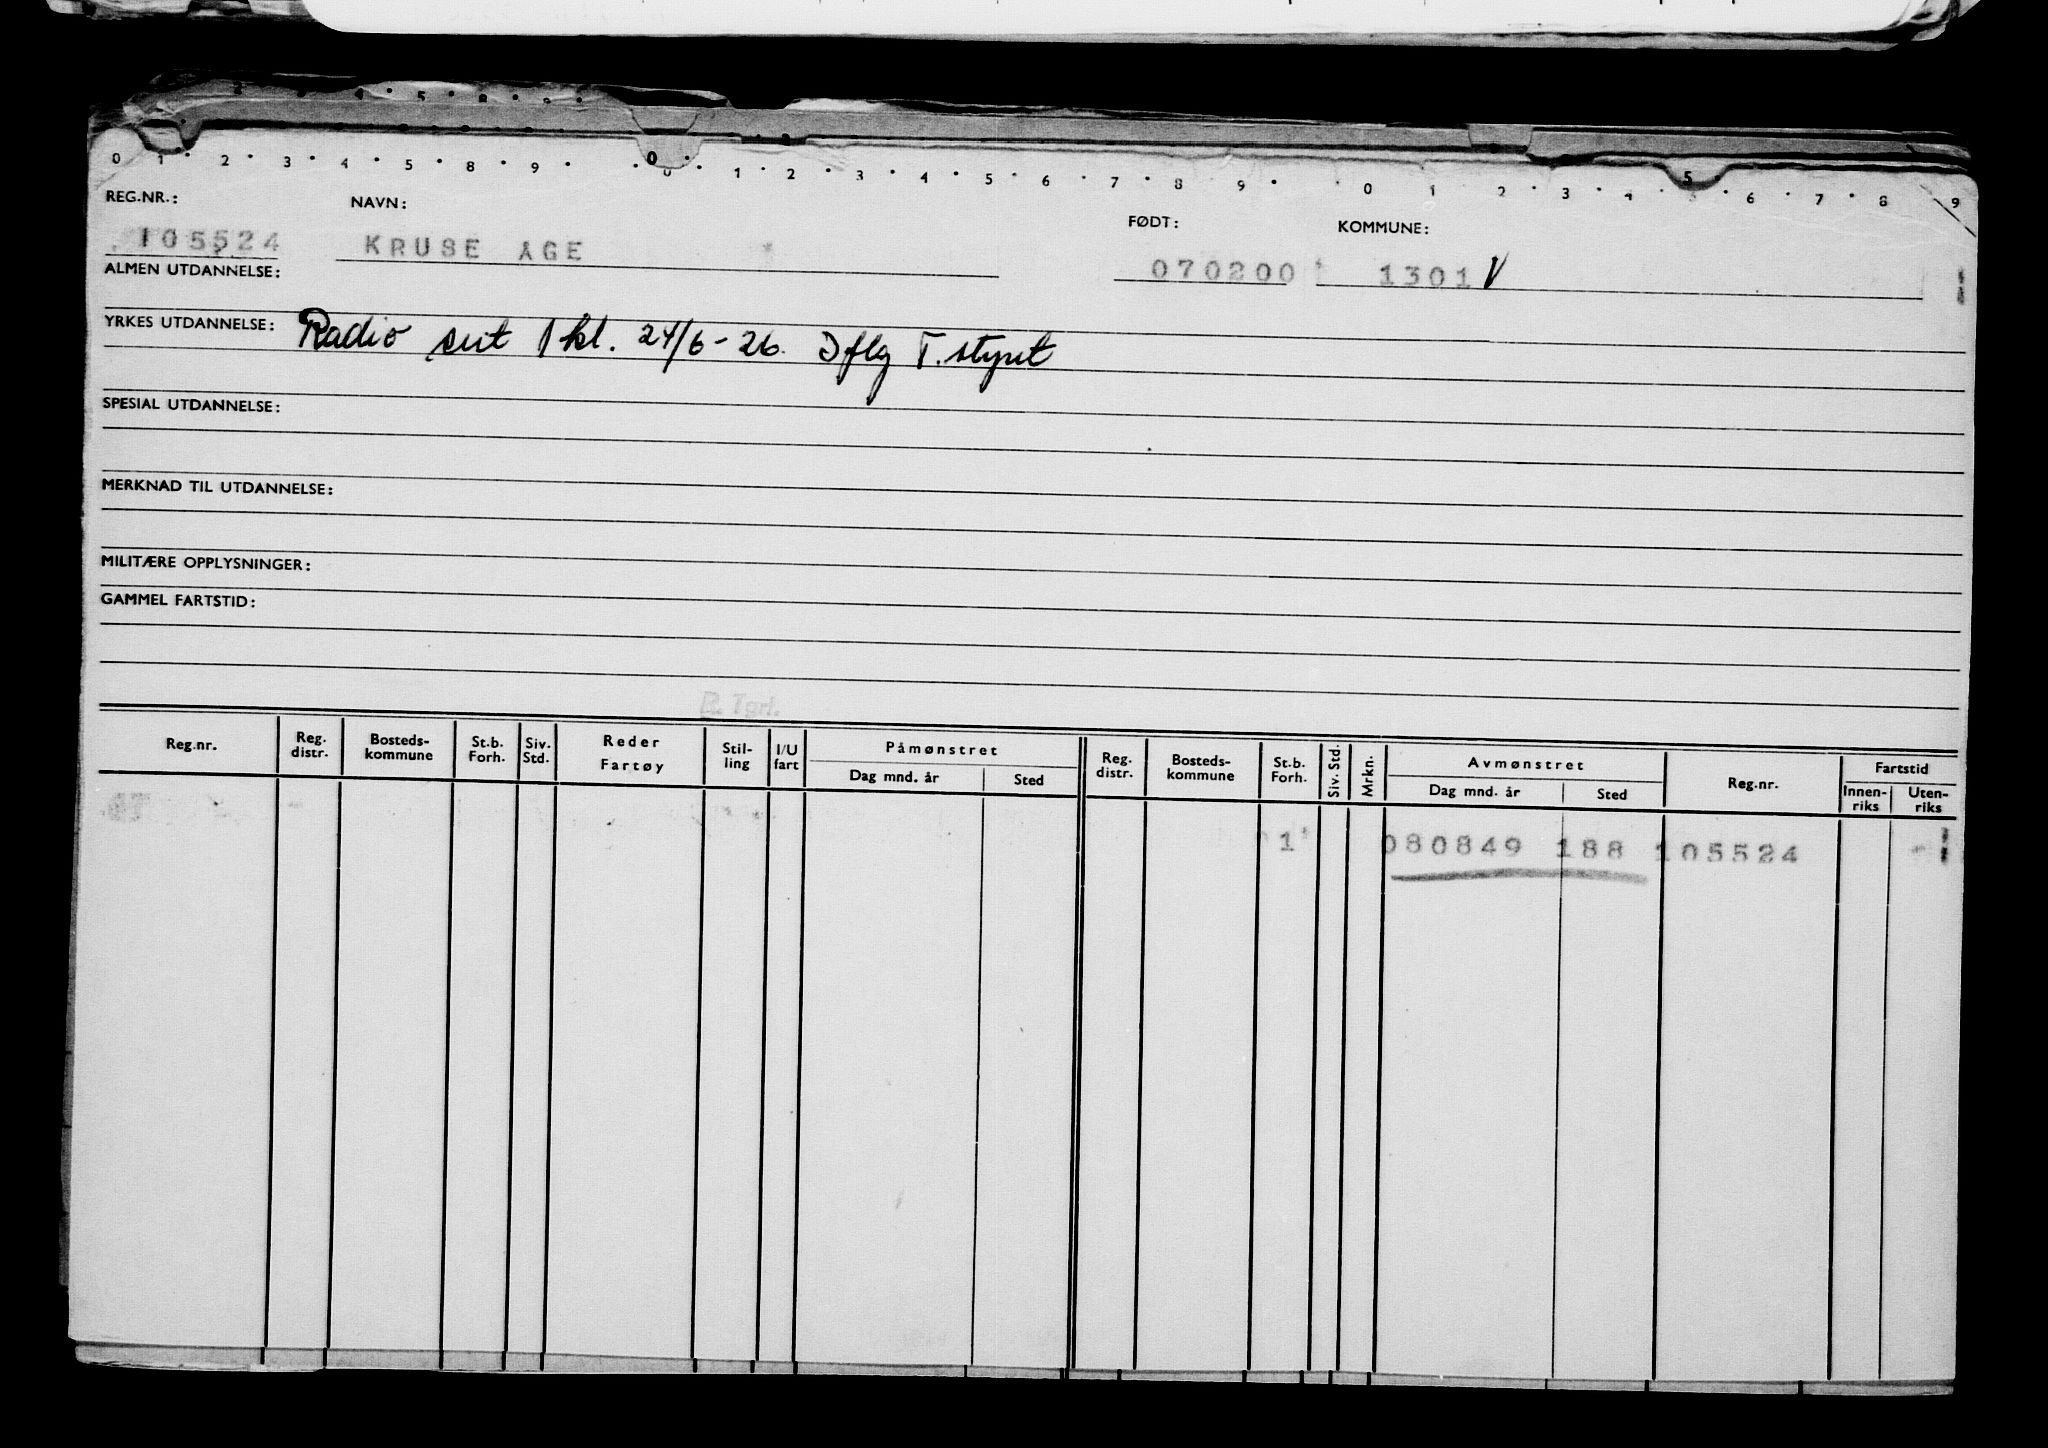 0 1 2 3 4 5 8 9 0 1 2 3 4 5 6 7 8 9 0 1 2 3 4 5 6 7 8 9
REG.NR.: NAVN: FØDT: KOMMUNE:
105524 KRUSE AGE 070200 1301 V
ALMEN UTDANNELSE:
YRKES UTDANNELSE: Radio sert 1 kl. 24/6-26. Iflg T.styret
SPESIAL UTDANNELSE:
MERKNAD TIL UTDANNELSE:
MILITÆRE OPPLYSNINGER:
GAMMEL FARTSTID:
Reg.nr. Reg. distr. Bosteds-kommune St.b. Forh. Siv. Std. Reder Fartøy Stil-ling I/U fart Påmønstret Dag mnd. år Sted Reg. distr. Bosteds-kommune St.b. Forh. Siv. Std. Mrkn. Avmønstret Dag mnd. år Sted Reg.nr. Fartstid Innen-riks Uten-riks
1 080849 188 105524